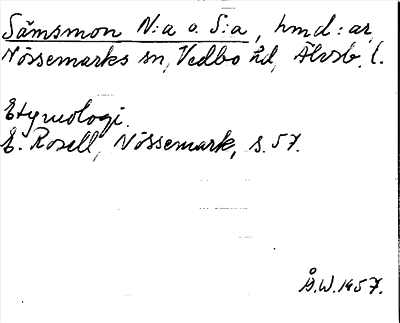 Sämsmon N:a o. S:a, hmd:ar,
Nössemarks sn, Vedbo hd, Älvsb. l.
Etymologi.
E. Rosell, Nössemark, s. 57.
Å.W. 1957.